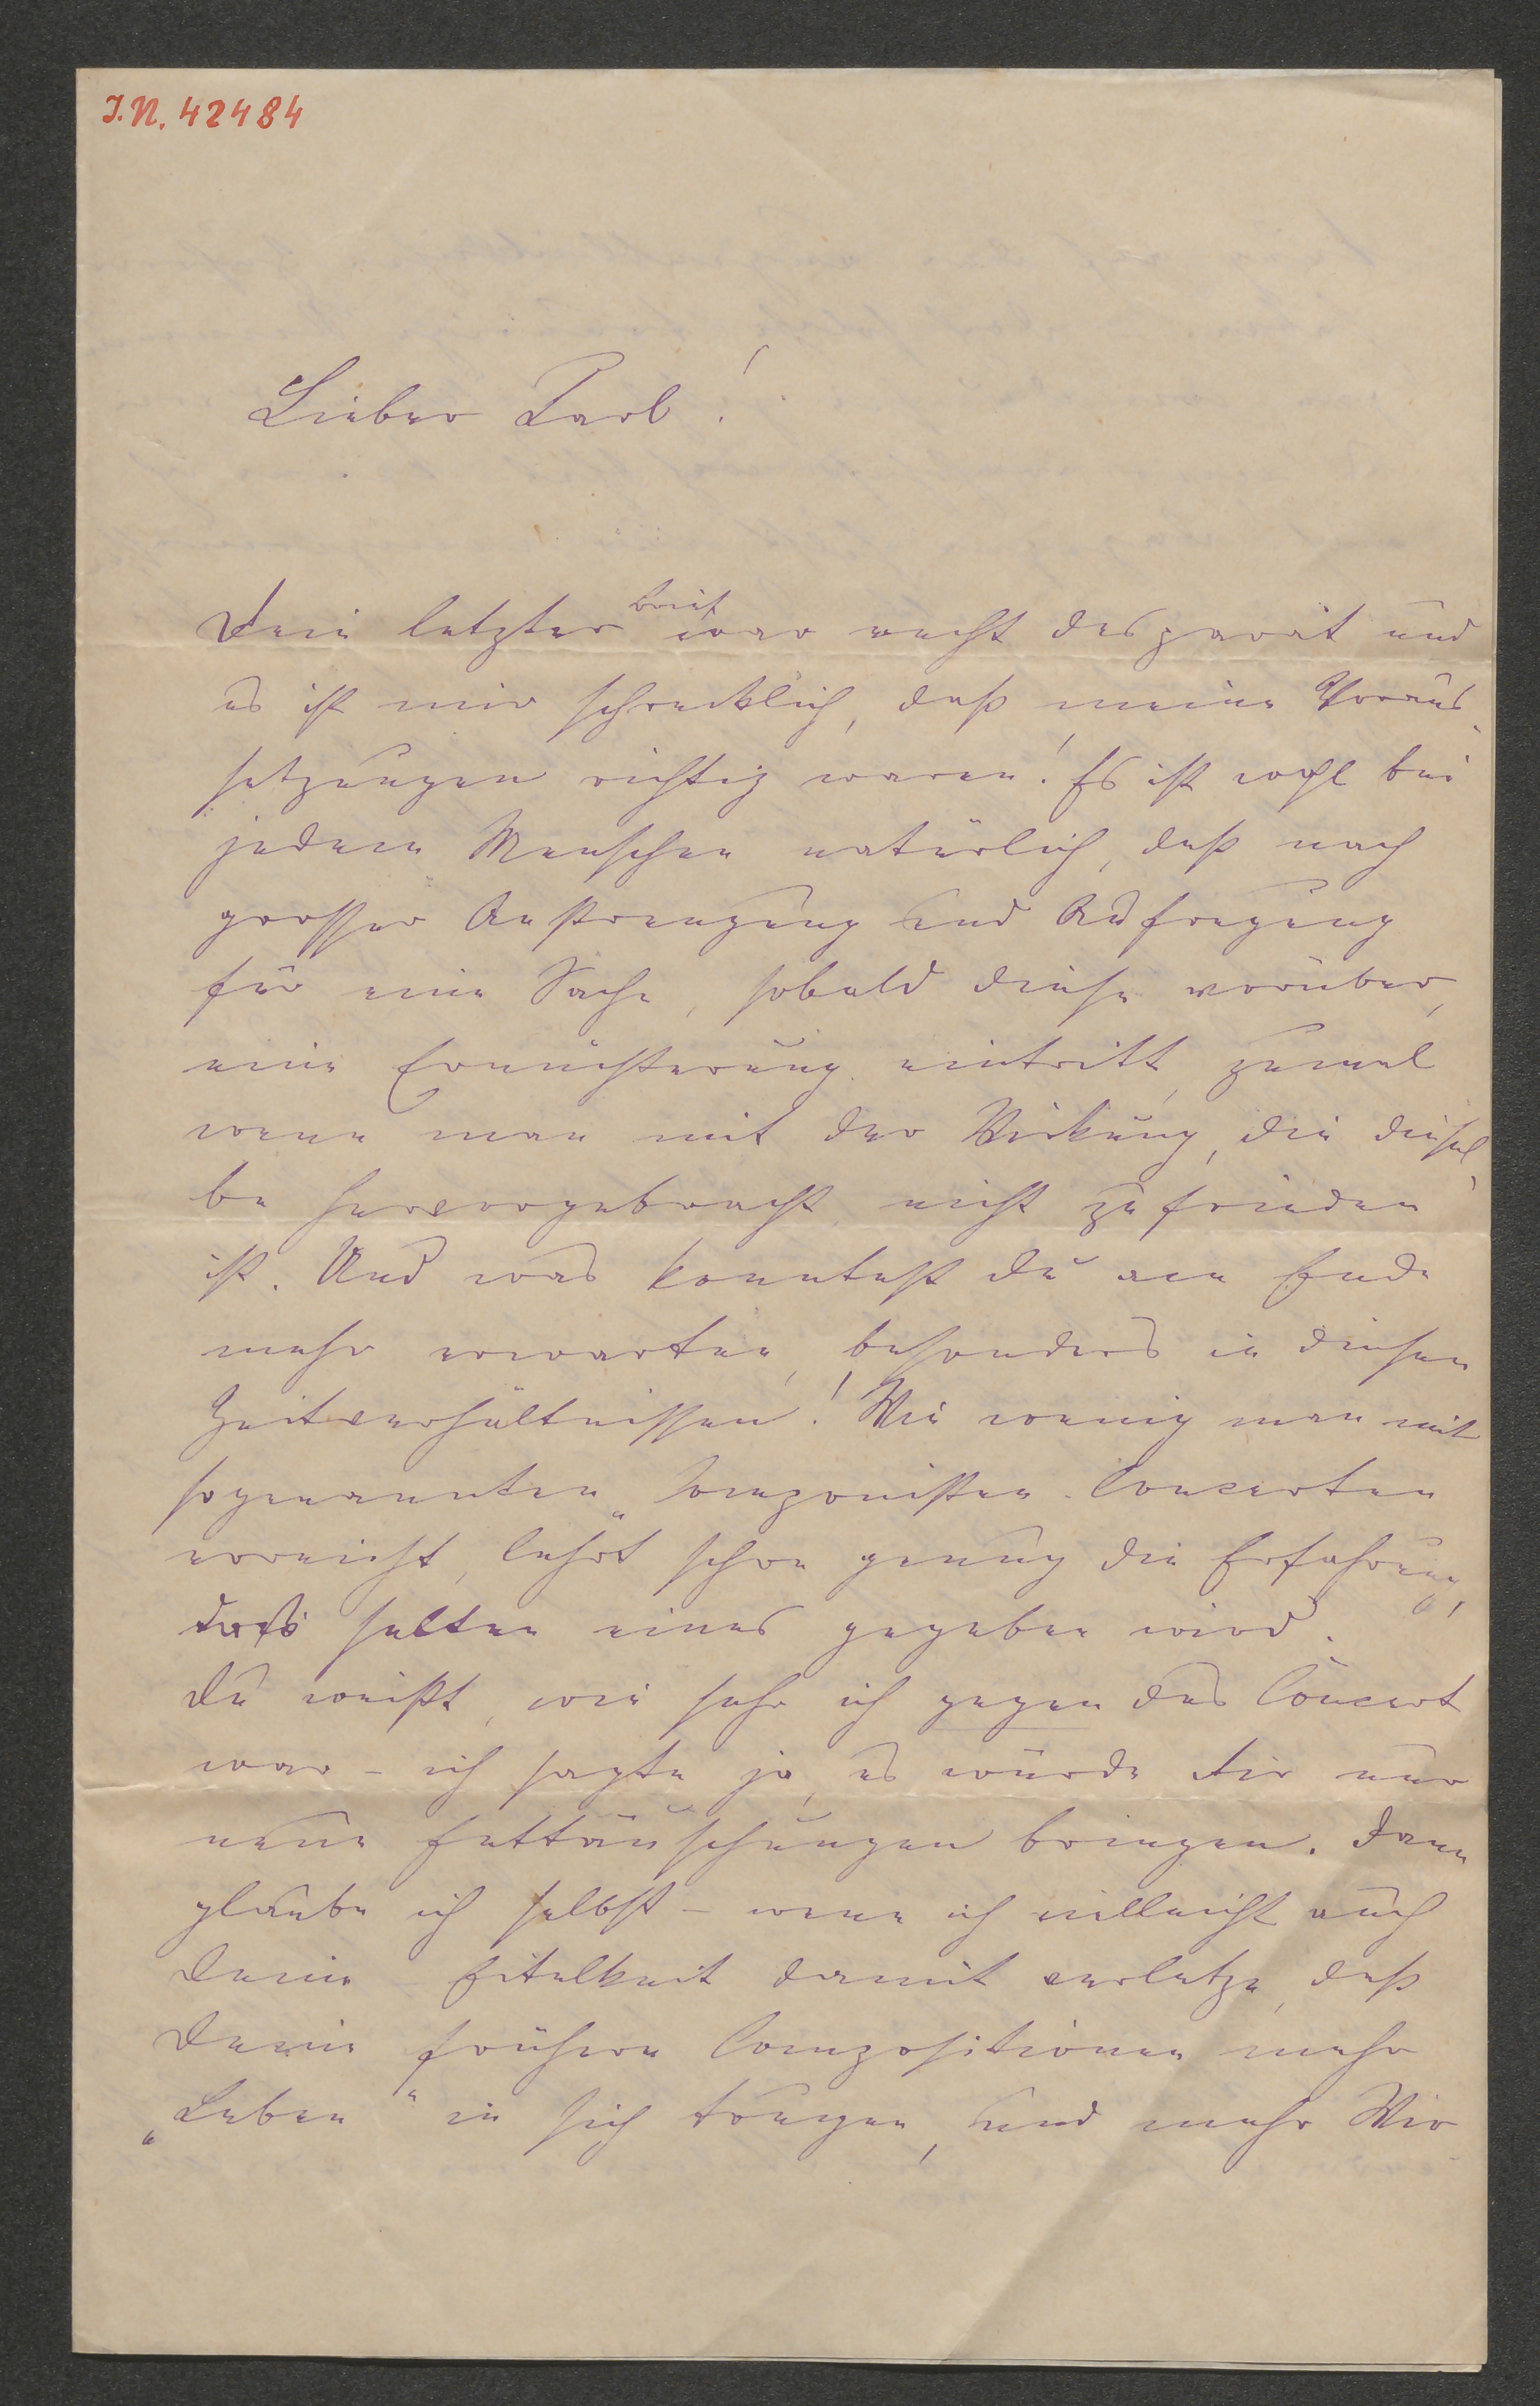 I.N. 42484
Lieber Carl!
Dein letzter Brief war recht desparat und
es ist mir schrecklich, daß meine Voraus-
setzungen richtig waren! Es ist wohl bei
jedem Menschen natürlich, daß nach
grosser Anstrengung und Aufregung
für eine Sache, sobald diese vorüber,
eine Ernüchterung eintritt, zumal
wenn man mit der Wirkung, die diesel-
be hervorgebracht nicht zufrieden
ist. Und was konntest Du am Ende
mehr erwarten, besonders in diesen
Zeitverhältnissen! Wie wenig man mit
sogenannten „Componisten Concerten
erreicht, lehrt schon genug die Erfahrung,
daß selten eines gegeben wird.
Du weißt, wie sehr ich gegen das Concert
war – ich sagte ja, es würde Dir nur
neue Enttäuschungen bringen. Dann
glaube ich selbst – wenn ich vielleicht auch
Deine Eitelkeit damit verletze, daß
Deine frühern Compositionen mehr
„Leben" in sich trugen, und mehr Wir